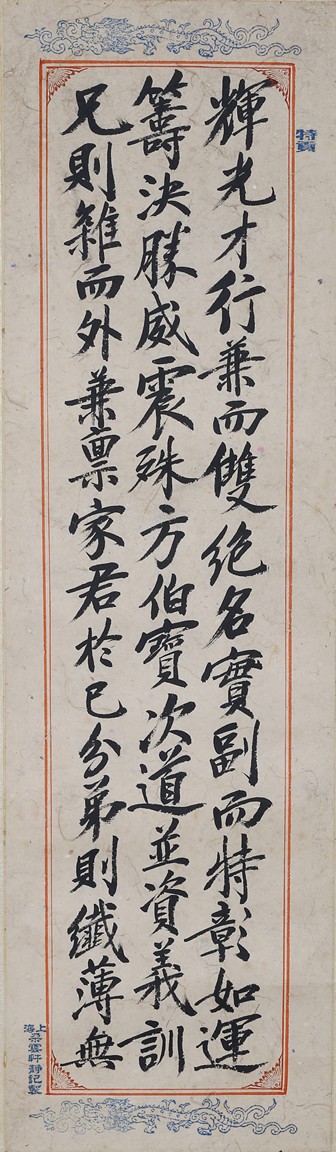 特貢
輝光才行兼而雙絶名實副而特彰如運
籌決勝威震殊方伯寶次道並資義訓
兄則雜而外兼禀家君於己分弟則纖薄無
上海朵雲軒靜記製